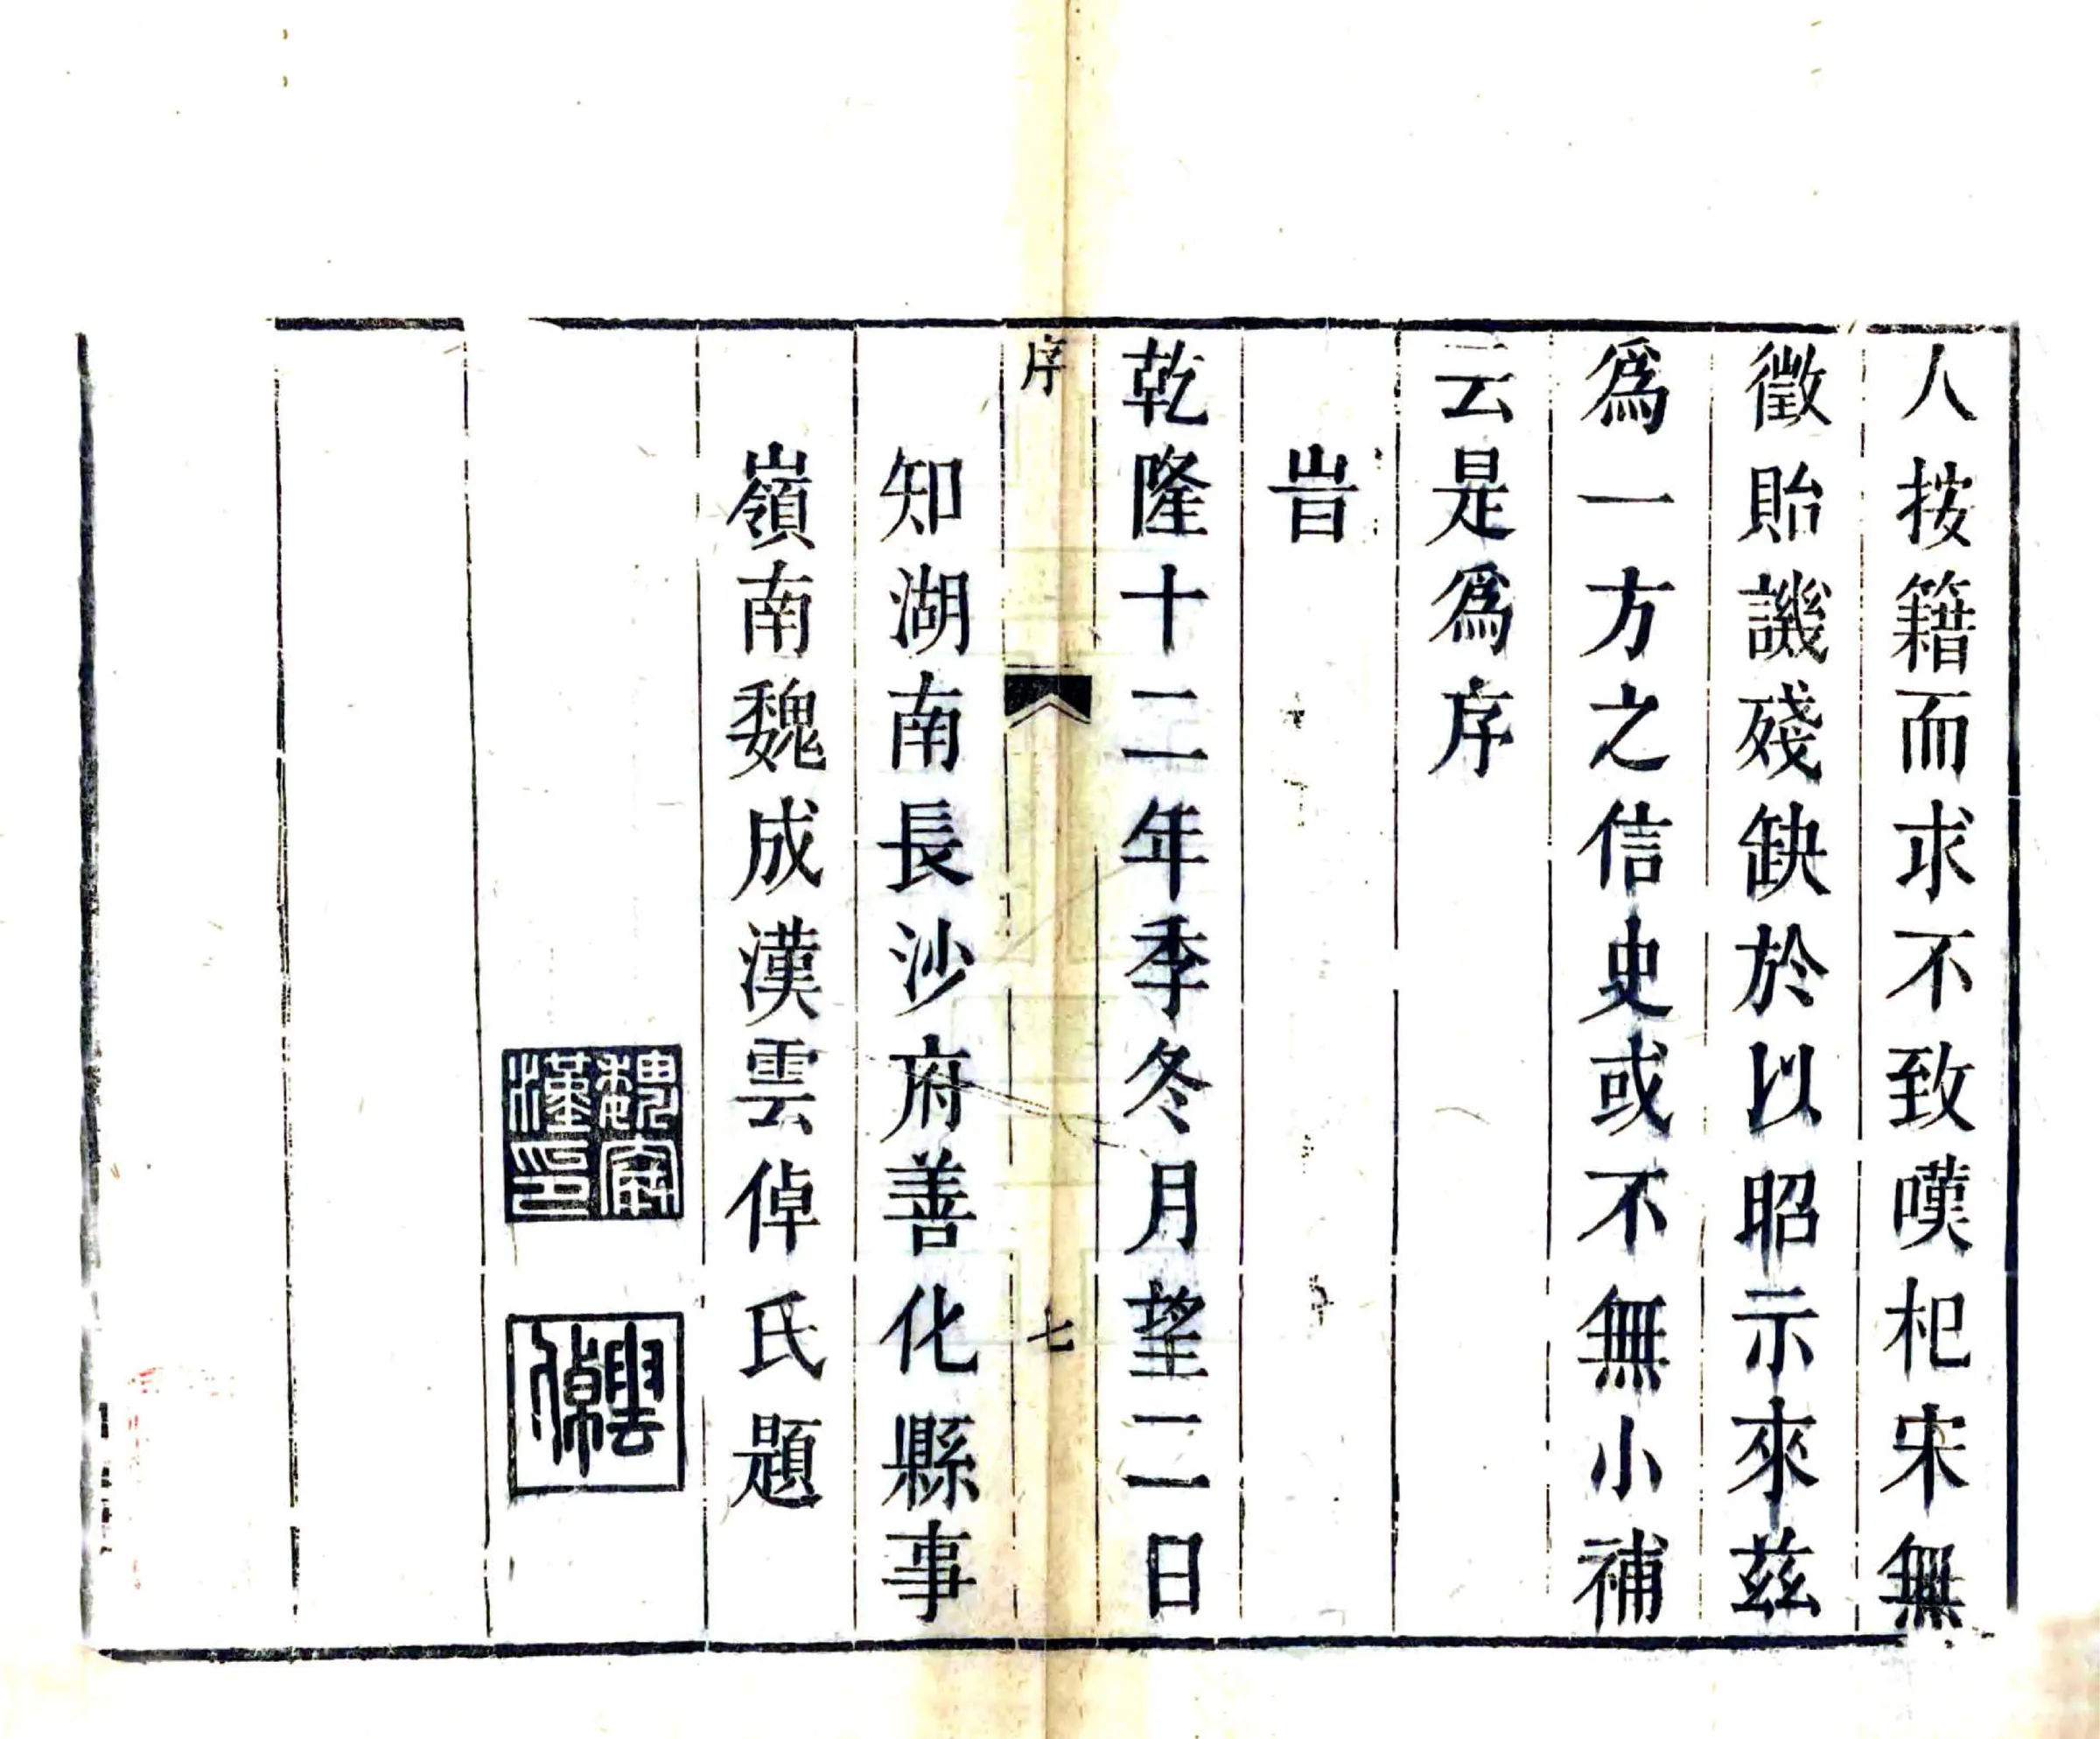 人按籍而求不致嘆杞宋無
徵貽譏殘缺於以昭示來茲
爲一方之信史或不無小補
云是爲序
旹
乾隆十二年季冬月望二日
序
七
知湖南長沙府善化縣事
嶺南魏成漢雲倬氏題
魏成漢印
雲倬